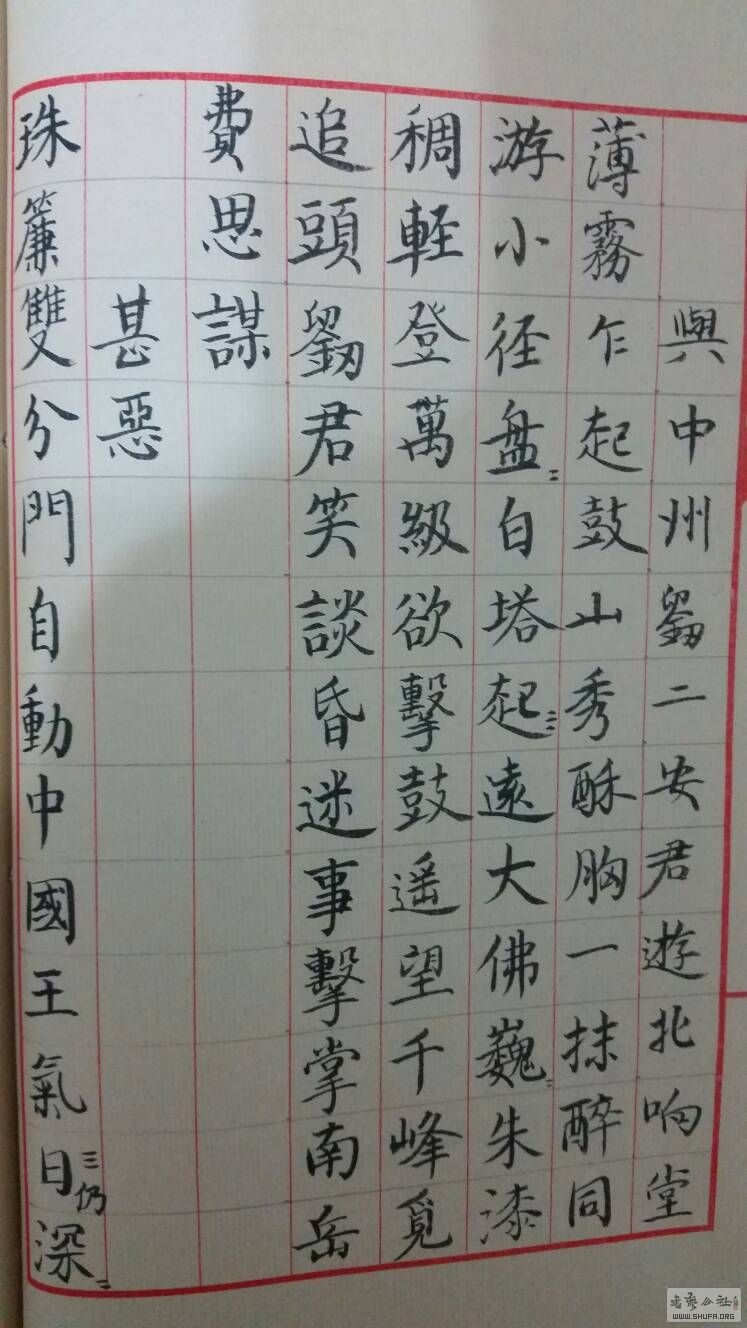 與中州劉二安君遊北响堂
薄霧乍起鼓山秀酥胸一抹醉同
游小径盘〻白塔起〻遠大佛巍〻朱漆
稠輕登萬級欲擊鼓遥望千峰覓
追頭劉君笑談昏迷事擊掌南岳
費思謀
甚惡
珠簾雙分門自動中國王氣日三仍深〻
WWW.SHUFA.ORG